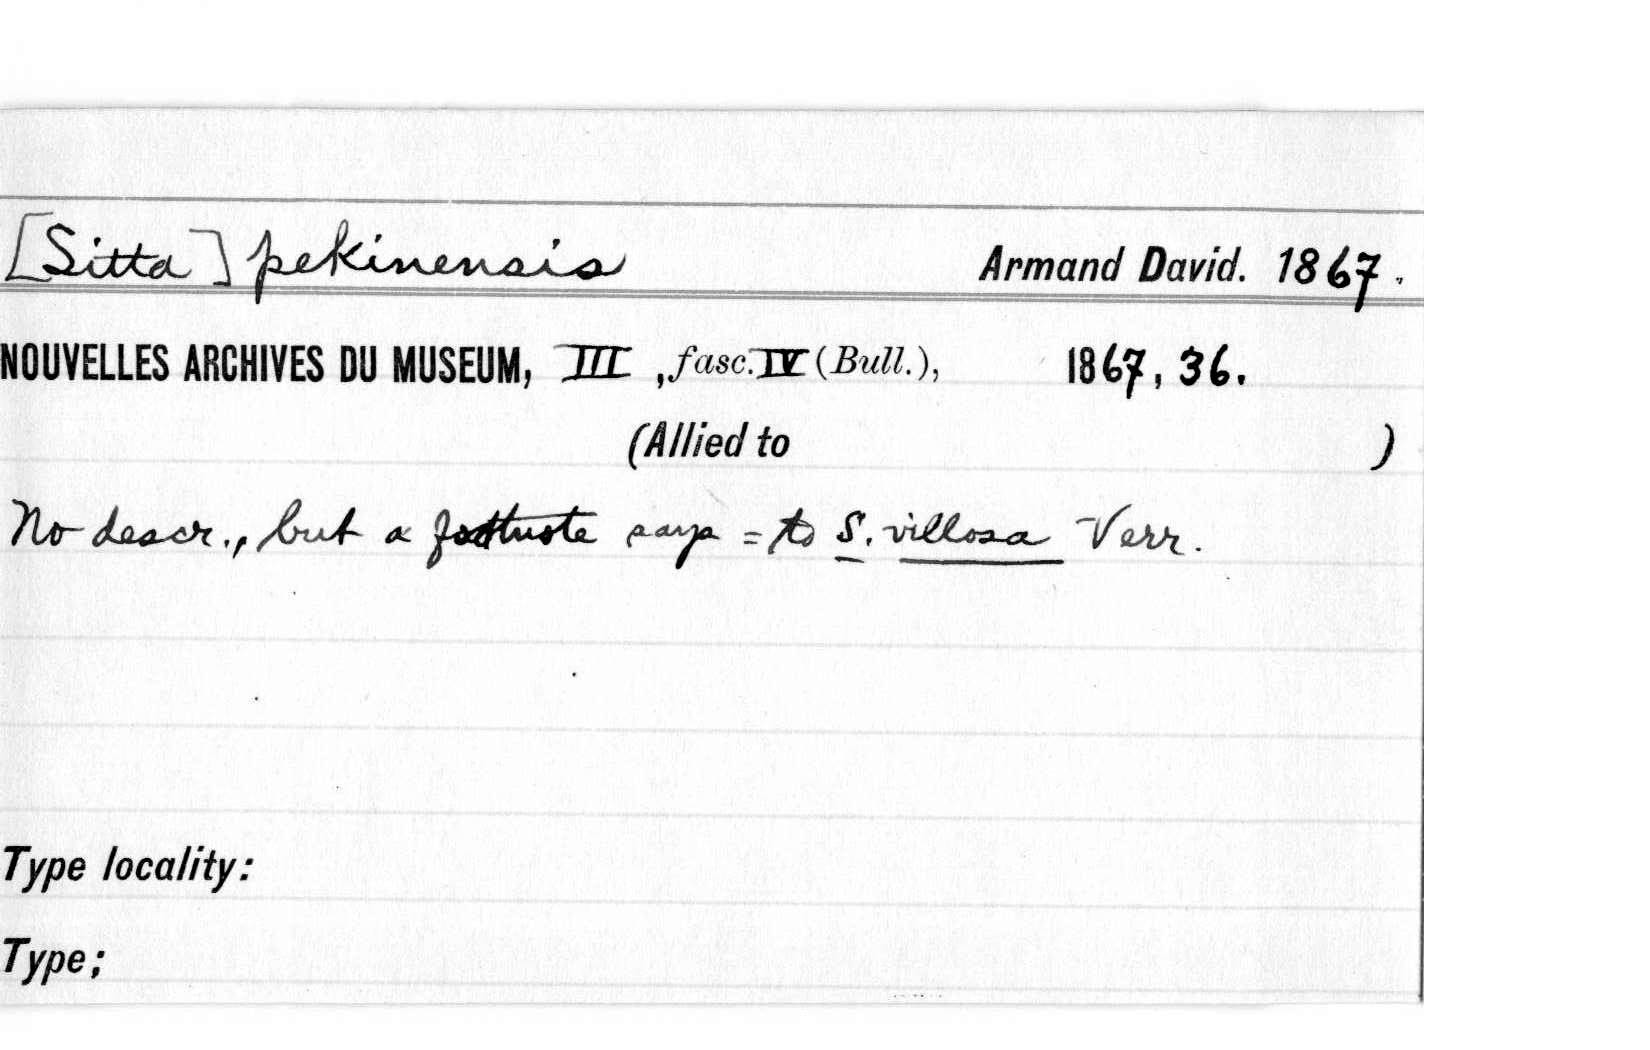 [Sitta] pekinensis Armand David. 1867.
NOUVELLES ARCHIVES DU MUSEUM, III, fasc. IV (Bull.), 1867, 36.
(Allied to )
No descr., but a footnote says = to S. villosa Verr.
Type locality:
Type;